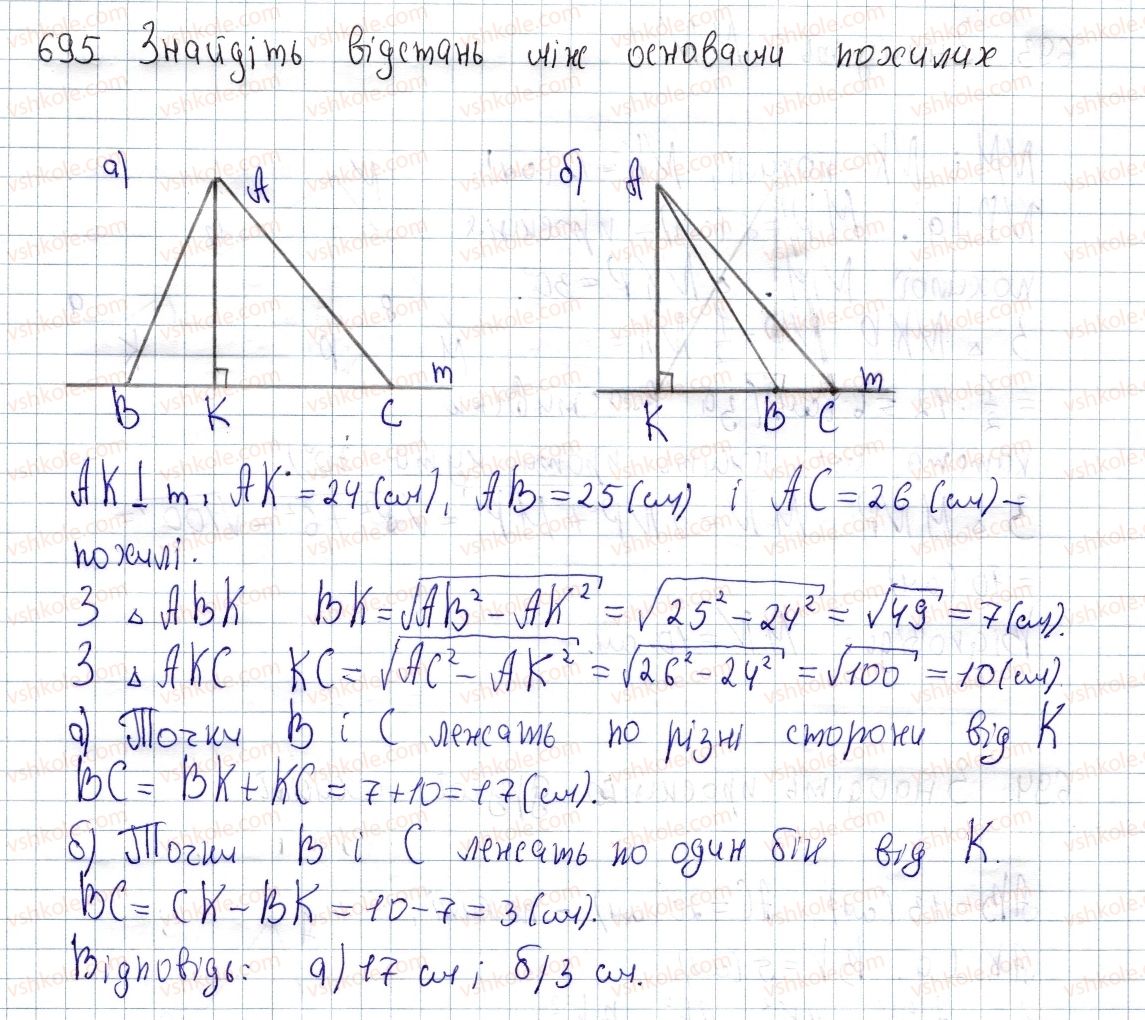 695 Знайдіть відстань між основами похилих
а) A б) A
B K C m K B C m
AK⊥m, AK = 24 (см), AB = 25 (см) і AC = 26 (см) –
похилі.
З △ ABK BK = √AB² – AK² = √25² – 24² = √49 = 7 (см).
З △ AKC KC = √AC² – AK² = √26² – 24² = √100 = 10 (см)
а) Точки B і C лежать по різні сторони від K
BC = BK + KC = 7 + 10 = 17 (см).
б) Точки B і C лежать по один бік від K.
BC = CK – BK = 10 – 7 = 3 (см).
Відповідь: а) 17 см; б) 3 см.